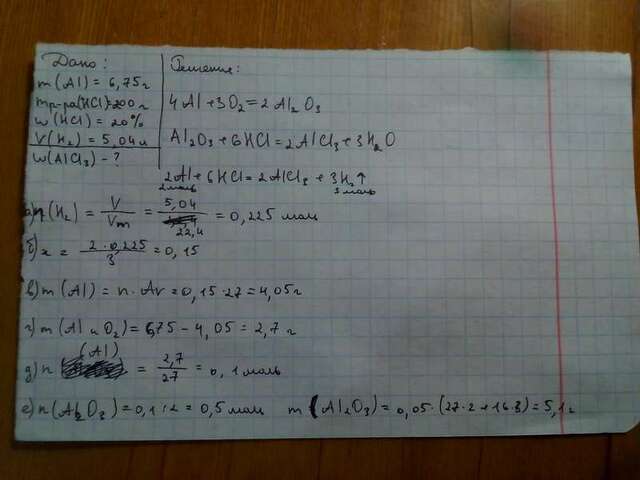 Дано:
m(Al) = 6,75 г
mр-ра(HCl)=200 г
w(HCl) = 20%
V(H₂) = 5,04 л
w(AlCl₃) - ?
Решение:
4Al+3O₂=2Al₂O₃
Al₂O₃+6HCl=2AlCl₃+3H₂O
2Al+6HCl=2AlCl₃+3H₂↑
2 моль 3 моль
а) n(H₂) = V/Vm = 5,04/22,4 = 0,225 моль
б) x = 2·0,225/3 = 0,15
в) m(Al) = n·Ar=0,15·27=4,05г
г) m(Al и O₂)= 6,75 - 4,05 = 2,7 г
д) n (Al) = 2,7/27 = 0,1 моль
е) n(Al₂O₃)=0,1:2=0,5 моль m(Al₂O₃)=0,05·(27·2+16·3)=5,1г